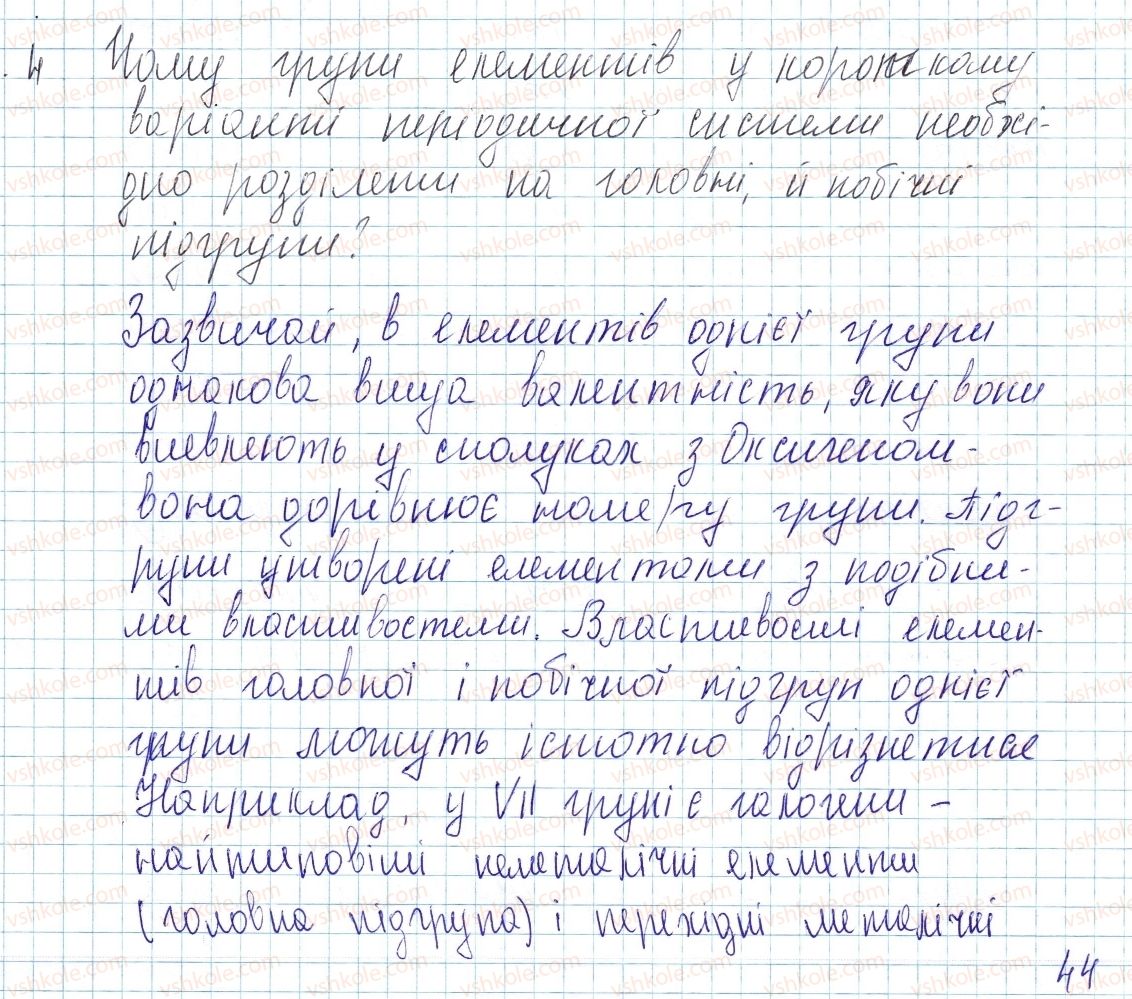 4 Чому групи елементів у короткому
варіанті періодичної системи необхі-
дно розділяти на головні, й побічні
підгрупи?
Зазвичай, в елементів однієї групи
однакова вища валентність, яку вони
виявляють у сполуках з Оксигеном-
вона дорівнює номеру групи. Підг-
рупи утворені елементами з подібни-
ми властивостями. Властивості елемен-
тів головної і побічної підгруп однієї
групи можуть істотно відрізнятися
Наприклад, у VII групі є галогени –
найтиповіші неметалічні елементи
(головна підгрупа) і перехідні металічні
44